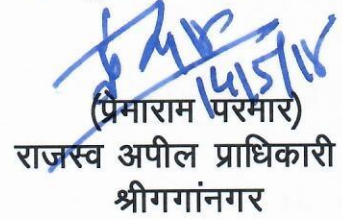 14/5/18
(प्रेमाराम परमार)
राजस्व अपील प्राधिकारी
श्रीगगांनगर